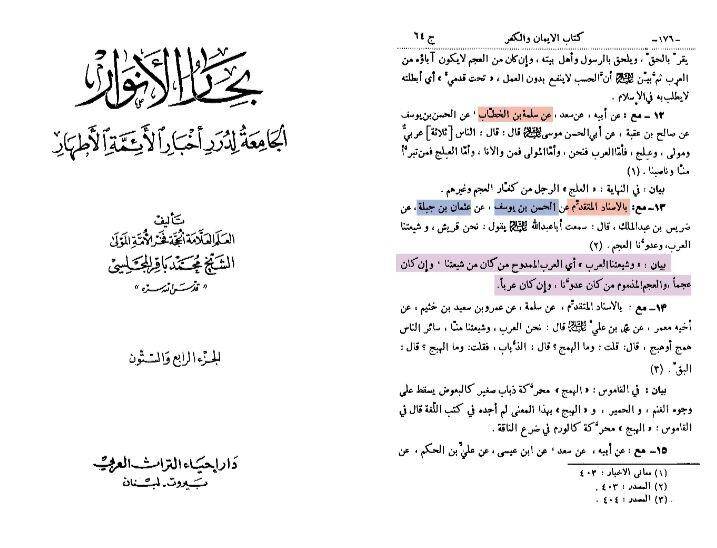 بحار الأنوار
الجامعة لدرر أخبار الأئمة الأطهار
تأليف
العلم العلامة الحجة فخر الأمة المولى
الشيخ محمد باقر المجلسي
« قدس الله سره »
الجزء الرابع والستون
دار إحياء التراث العربي
بيروت - لبنان
-١٧٦- كتاب الايمان والكفر ج ٦٤
يقرّ بالحق ، ويلحق بالرسول وأهل بيته ، وإن كان من العجم لايكون آباؤه من
العرب ثم بيّن أنّ الحسب لاينفع بدون العمل ، « تحت قدمي » أي أبطلته
لا يطلب به في الإسلام .
١٢ - مع : عن أبيه ، عن سعد ، عن سلمة بن الخطّاب عن الحسن بن يوسف
عن صالح بن عقبة ، عن أبي الحسن موسى عليه السلام قال : قال : الناس [ثلاثة] عربيّ
ومولى ، وعلج ، فأمّا العرب فنحن ، وأمّا المولى فمن والانا ، وأمّا العلج فمن تبرّأ
منّا وناصبنا . (١)
بيان : في النهاية : « العلج » الرجل من كفّار العجم وغيرهم .
١٣ - مع : بالاسناد المتقدّم عن الحسن بن يوسف ، عن عثمان بن جبلة ، عن
ضريس بن عبدالملك ، قال : سمعت أباعبدالله عليه السلام يقول : نحن قريش ، و شيعتنا
العرب ، وعدوّنا العجم . (٢)
بيان : « وشيعتنا العرب » أي العرب الممدوح من كان من شيعتنا ، وإن كان
عجماً ، والعجم المذموم من كان عدوّنا ، وإن كان عرباً .
١٤ - مع : بالاسناد المتقدّم ، عن سلمة ، عن عمرو بن سعيد بن خثيم ، عن
أخيه معمر ، عن محمد بن عليّ عليه السلام قال : نحن العرب ، وشيعتنا منّا ، سائر الناس
همج أوهبج ، قال: قلت : وما الهمج ؟ قال : الذّباب ، فقلت: وما الهبج ؟ قال :
البقّ . (٣)
بيان : في القاموس : « الهمج » محرّكة ذباب صغير كالبعوض يسقط على
وجوه الغنم ، و الحمير ، و « الهبج » بهذا المعنى لم أجده في كتب اللّغة قال في
القاموس : « الهبج » محرّكة كالورم في ضرع الناقة .
١٥ - مع : عن أبيه ، عن سعد ، عن ابن عيسى ، عن عليّ بن الحكم ، عن
(١) معاني الاخبار : ٤٠٣
(٢) المصدر : ٤٠٣ .
(٣) المصدر : ٤٠٤ .